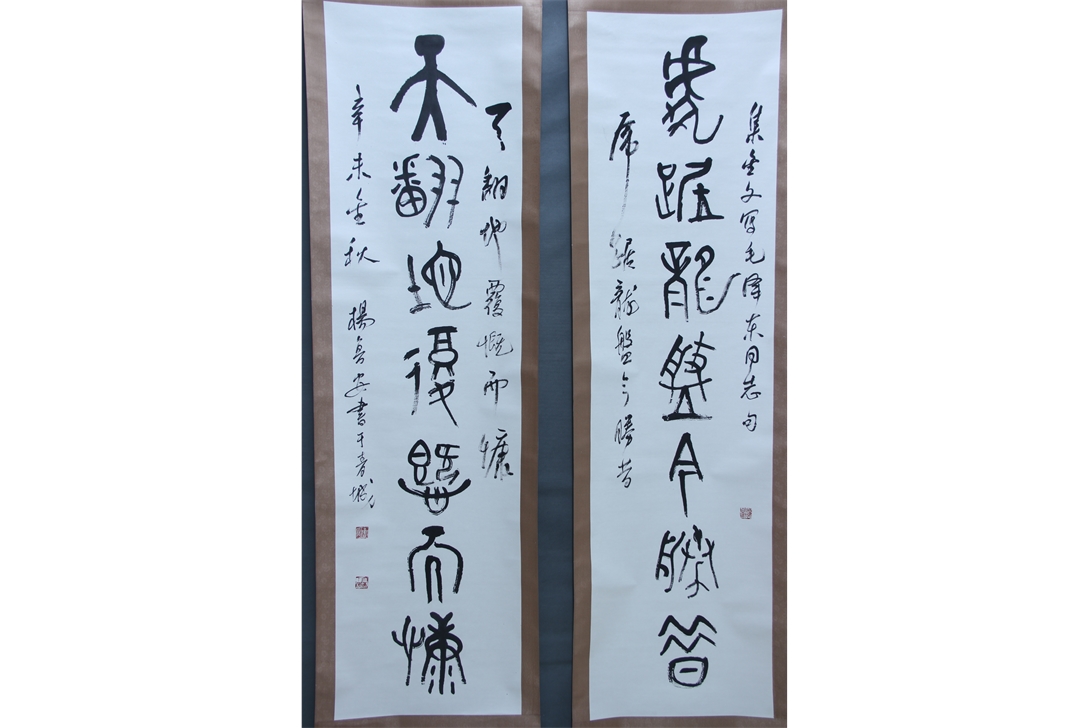 集金文写毛泽东同志句
虎踞龍盤今勝昔
虎踞龍盤今勝昔
天翻地覆慨而慷
天翻地復慨而慷
辛未金秋 楊魯安書于青城